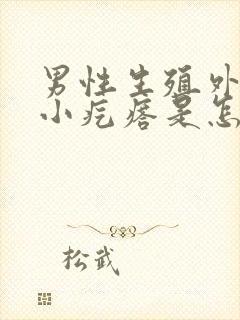 男性生殖外
小疙瘩是怎
松武